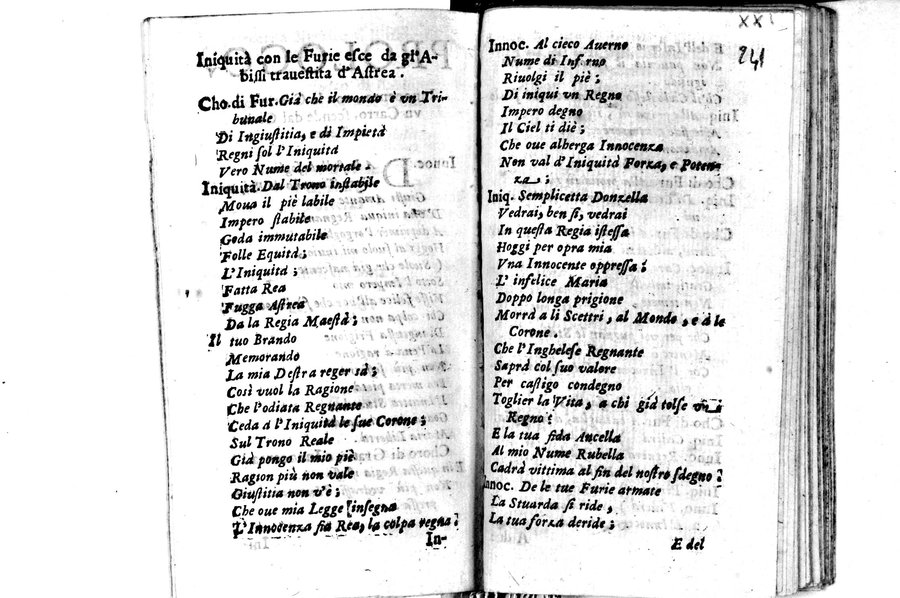 Iniquità con le Furie esce da gl'A-
bissi travestita d'Astrea.
Cho. di Fur. Già che il mondo è vn Tri-
bunale
Di Ingiustitia, e di Impietà
Regni sol l'Iniquità
Vero Nume del mortale.
Iniquità. Dal Trono instabile
Moua il piè labile
Impero stabile
Goda immutabile
Folle Equità;
L'Iniquità;
Fatta Rea
Fugga Astrea
Da la Regia Maestà;
Il tuo Brando
Memorando
La mia Destra regerà;
Così vuol la Ragione
Che l'odiata Regnante
Ceda a l'Iniquità le sue Corone;
Sul Trono Reale
Già pongo il mio piè
Ragion più non vale
Giustitia non v'è;
Che oue mia Legge insegna
L'Innocenza sia Rea, la colpa regna?
In-
XXI
241
Innoc. Al cieco Auerno
Nume di Inferno
Riuolgi il piè;
Di iniqui vn Regno
Impero degno
Il Ciel ti diè;
Che oue alberga Innocenza
Non val d'Iniquità Forza, e Poten-
za.;
Iniq. Semplicetta Donzella
Vedrai, ben sì, vedrai
In questa Regia istessa
Hoggi per opra mia
Vna Innocente oppressa?
L' infelice Maria
Doppo longa prigione
Morrà a li Scettri, al Mondo, e à le
Corone.
Che l'Inghelese Regnante
Saprà col suo valore
Per castigo condegno
Toglier la Vita, a chi già tolse vn
Regno?
E la tua fida Ancella
Al mio Nume Rubella
Cadrà vittima al fin del nostro sdegno?
Innoc. De le tue Furie armate
La Stuarda si ride,
La tua forza deride;
E del